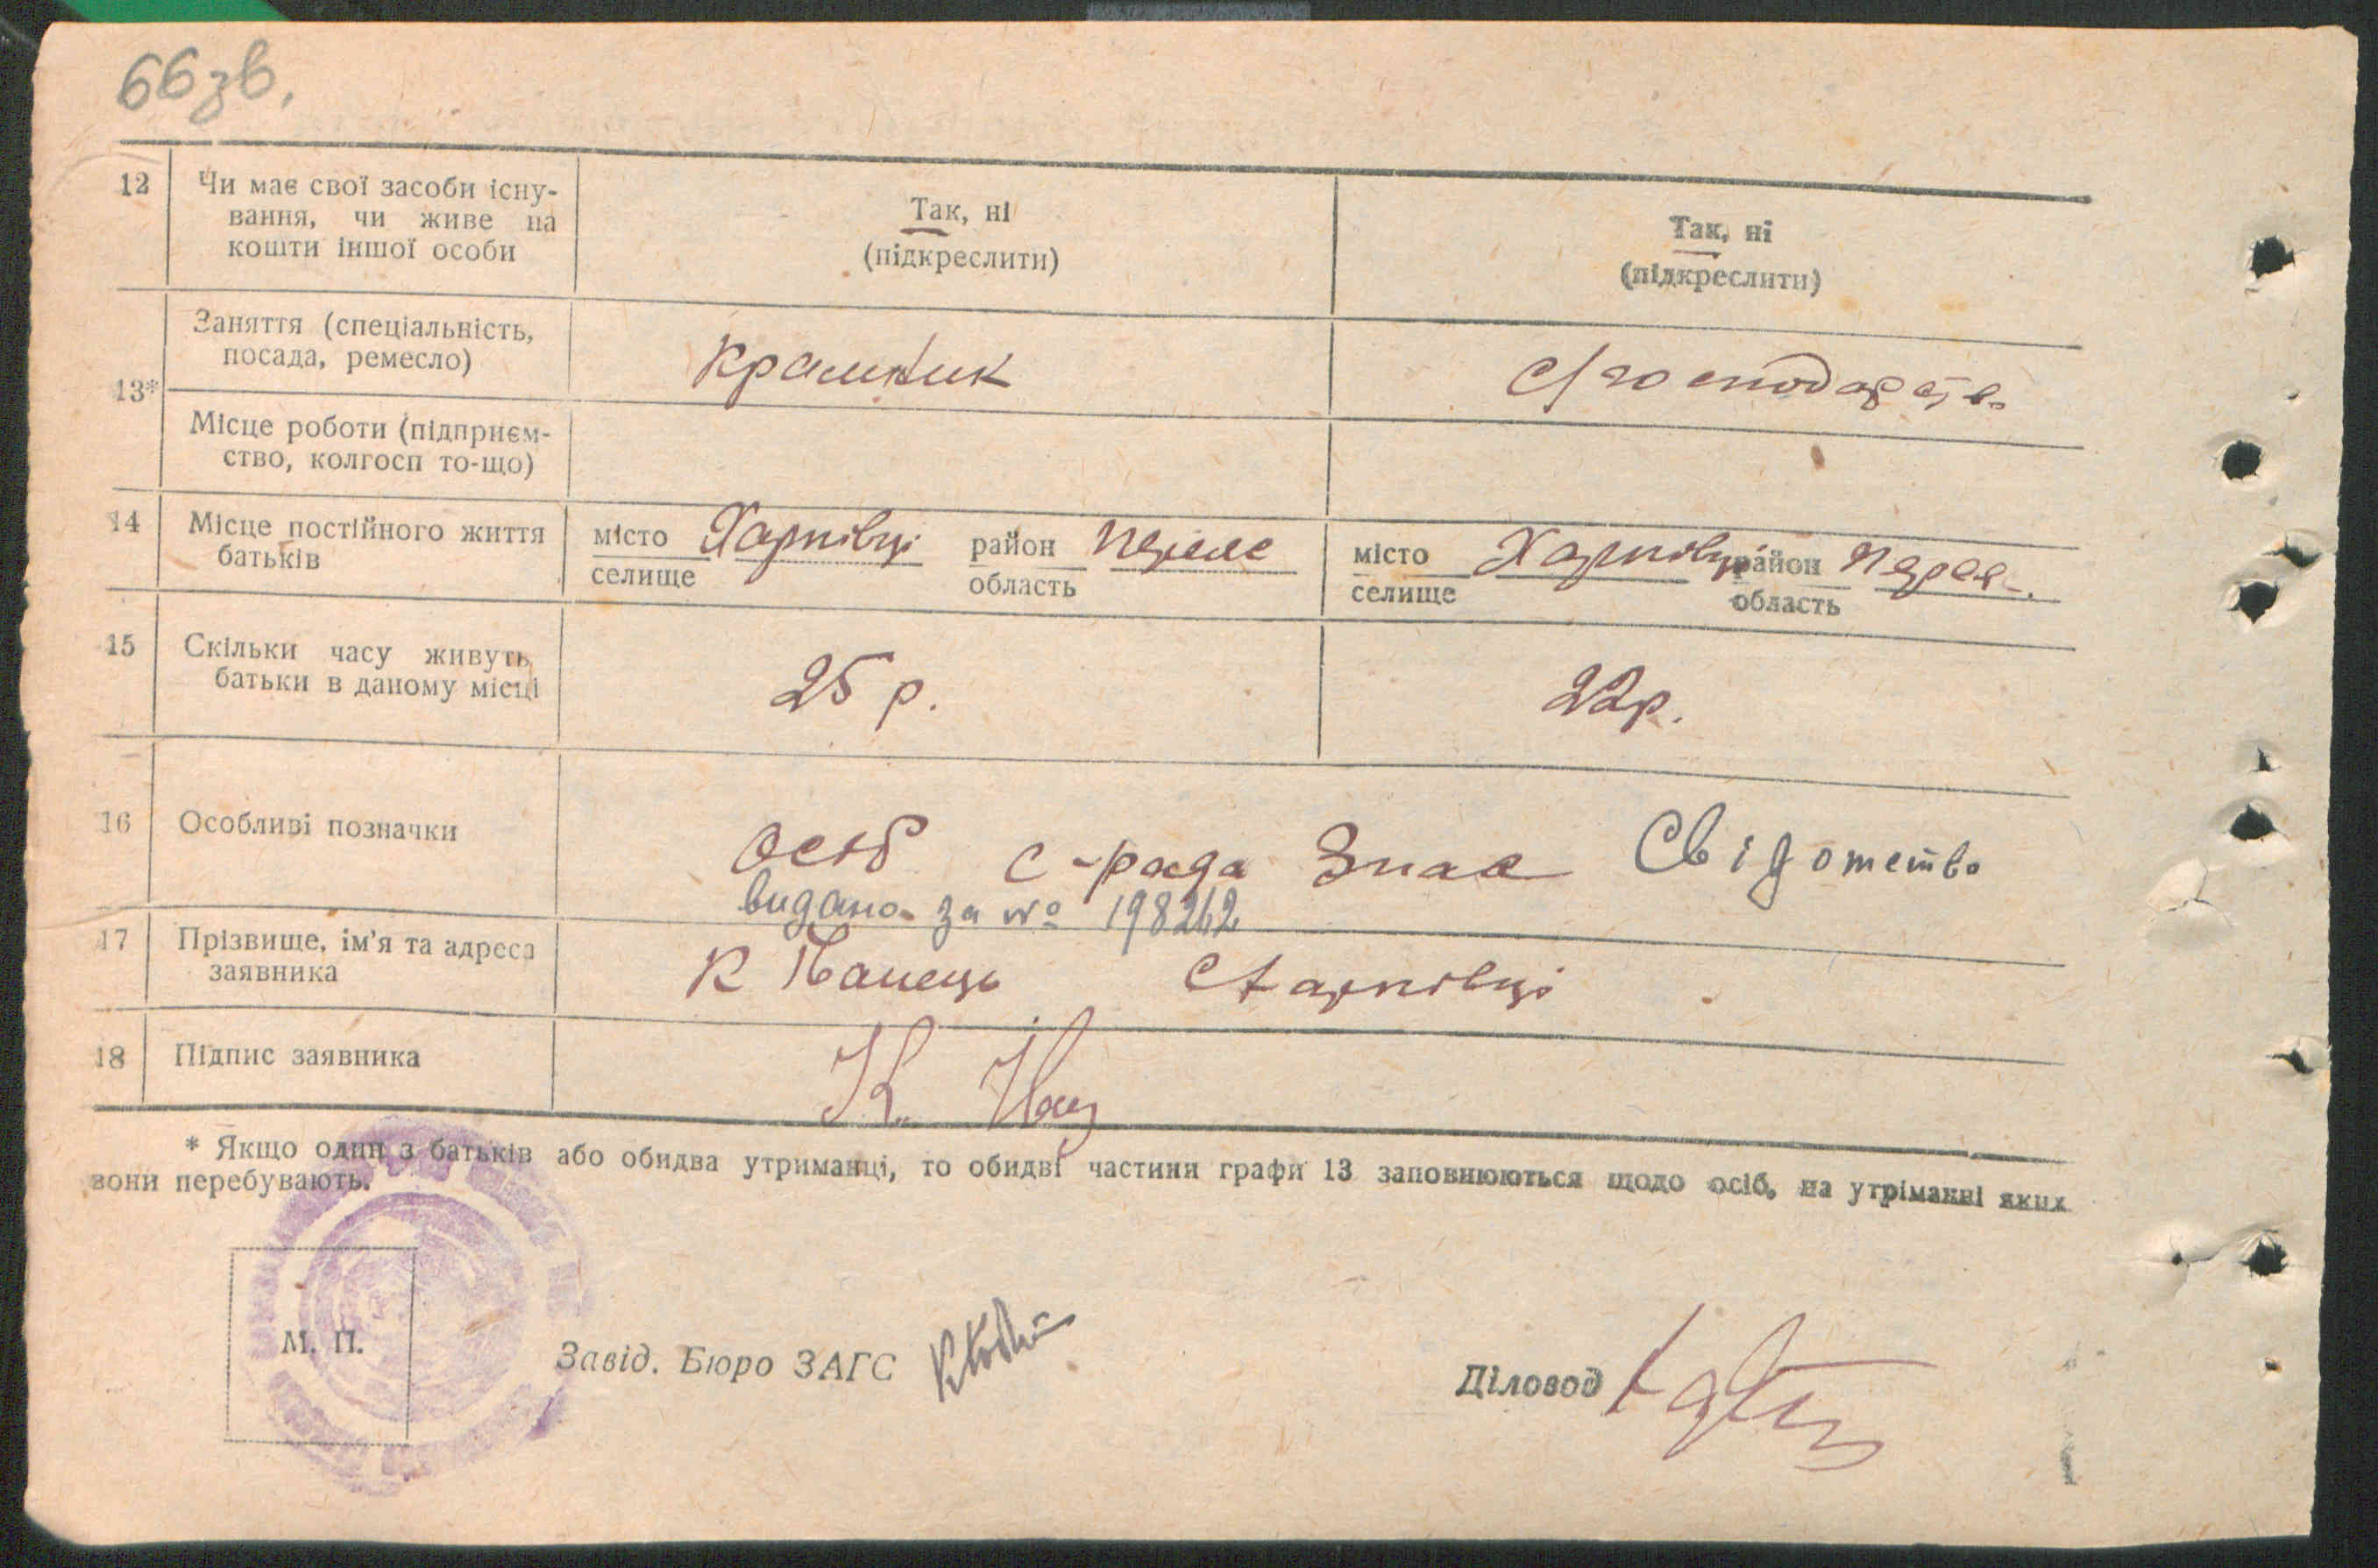 66зв.
12
Чи має свої засоби існу-
вання, чи живе на
кошти іншої особи
Так, ні
(підкреслити)
Так, ні
(підкреслити)
13*
Заняття (спеціальність,
посада, ремесло)
Крамник
с/господарств.
Місце роботи (підприєм-
ство, колгосп то-що)
14
Місце постійного життя
батьків
місто Харківці район
селище область
місто Харківці район Переяс.
селище область
15
Скільки часу живуть
батьки в даному місці
25 р.
22р.
16
Особливі позначки
особ с-рада Знає Свідотство
видано за № 198262
17
Прізвище, ім'я та адреса
заявника
К
Харківці
18
Підпис заявника
К.
* Якщо один з батьків або обидва утриманці, то обидві частини графи 13 заповнюються щодо осіб, на утріманні яких
вони перебувають.
М. П.
Завід. Бюро ЗАГС
Діловод